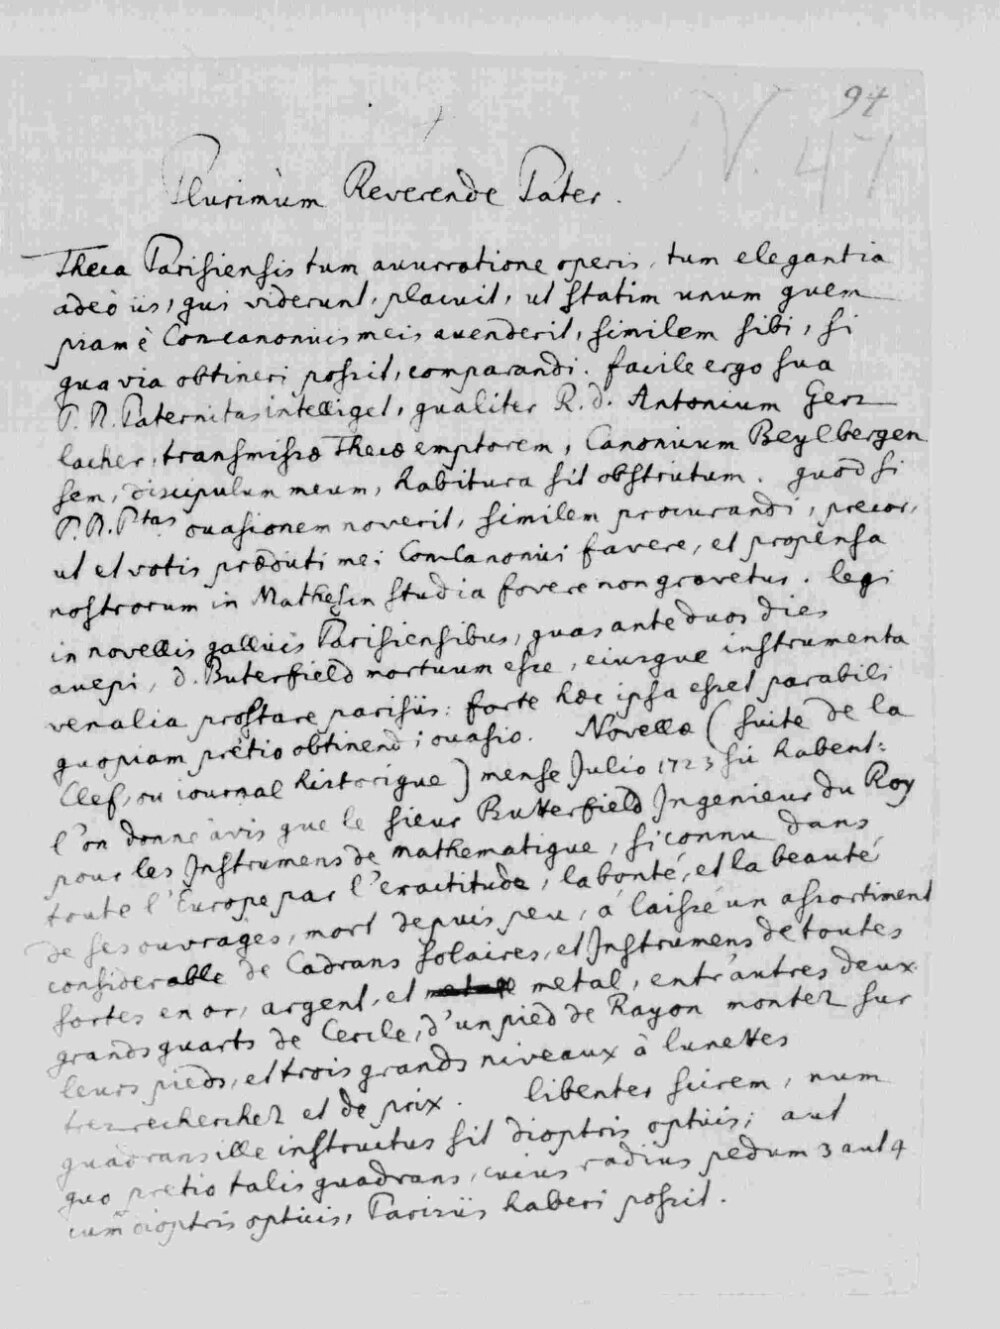 94
N. 47
Plurimùm Reverende Pater.
Theca Parisiensis tum accuratione operis, tum elegantia
adeò iis, qui viderunt, placuit, ut statim unum quem
piam è Concanonicis meis accenderit, similem sibi, si
qua via obtineri possit, comparandi. facile ergo sua
P. R. Paternitas intelliget, qualiter R. d. Antonium Gerz
lacher, transmissæ Thecæ emptorem, Canonicum Beylbergen
sem, discipulum meum, habitura sit obstrictum. quod si
P. R. Ptas occasionem noverit, similem procurandi, precor,
ut et votis prædicti mei ConCanonici favere, et propensa
nostrorum in Mathesin studia fovere non gravetur. legi
in novellis gallicis Parisiensibus, quas ante duos dies
accepi, d. Buterfield mortuum esse, eiusque instrumenta
venalia prostare parisiis: forte hæc ipsa esset parabili
quopiam prètio obtinendi occasio. Novellæ (suite de la
Clef, ou iournal historique) mense Julio 1723 sic habent:
l'on donne àvis que le sieur Butterfield Ingenieur du Roy
pour les Instrumens de mathematique, si connu dans
toute l'Europe par l'exactitude, la bonté, et la beauté
de ses ouvrages, mort depuis peu, à laissé un assortiment
considerable de Cadrans solaires, et Instrumens de toutes
sortes en or, argent, et metal, entr'autres deux
grands quarts de Cercle, d'un pied de Rayon montez sur
leurs pieds, et trois grands niveaux à lunettes
trez recherchez et de prix. libenter scirem, num
quadrans ille instructus sit dioptris opticis; aut
quo pretio talis quadrans, cuius radius pedum 3 aut 4
cum dioptris opticis, Parisiis haberi possit.